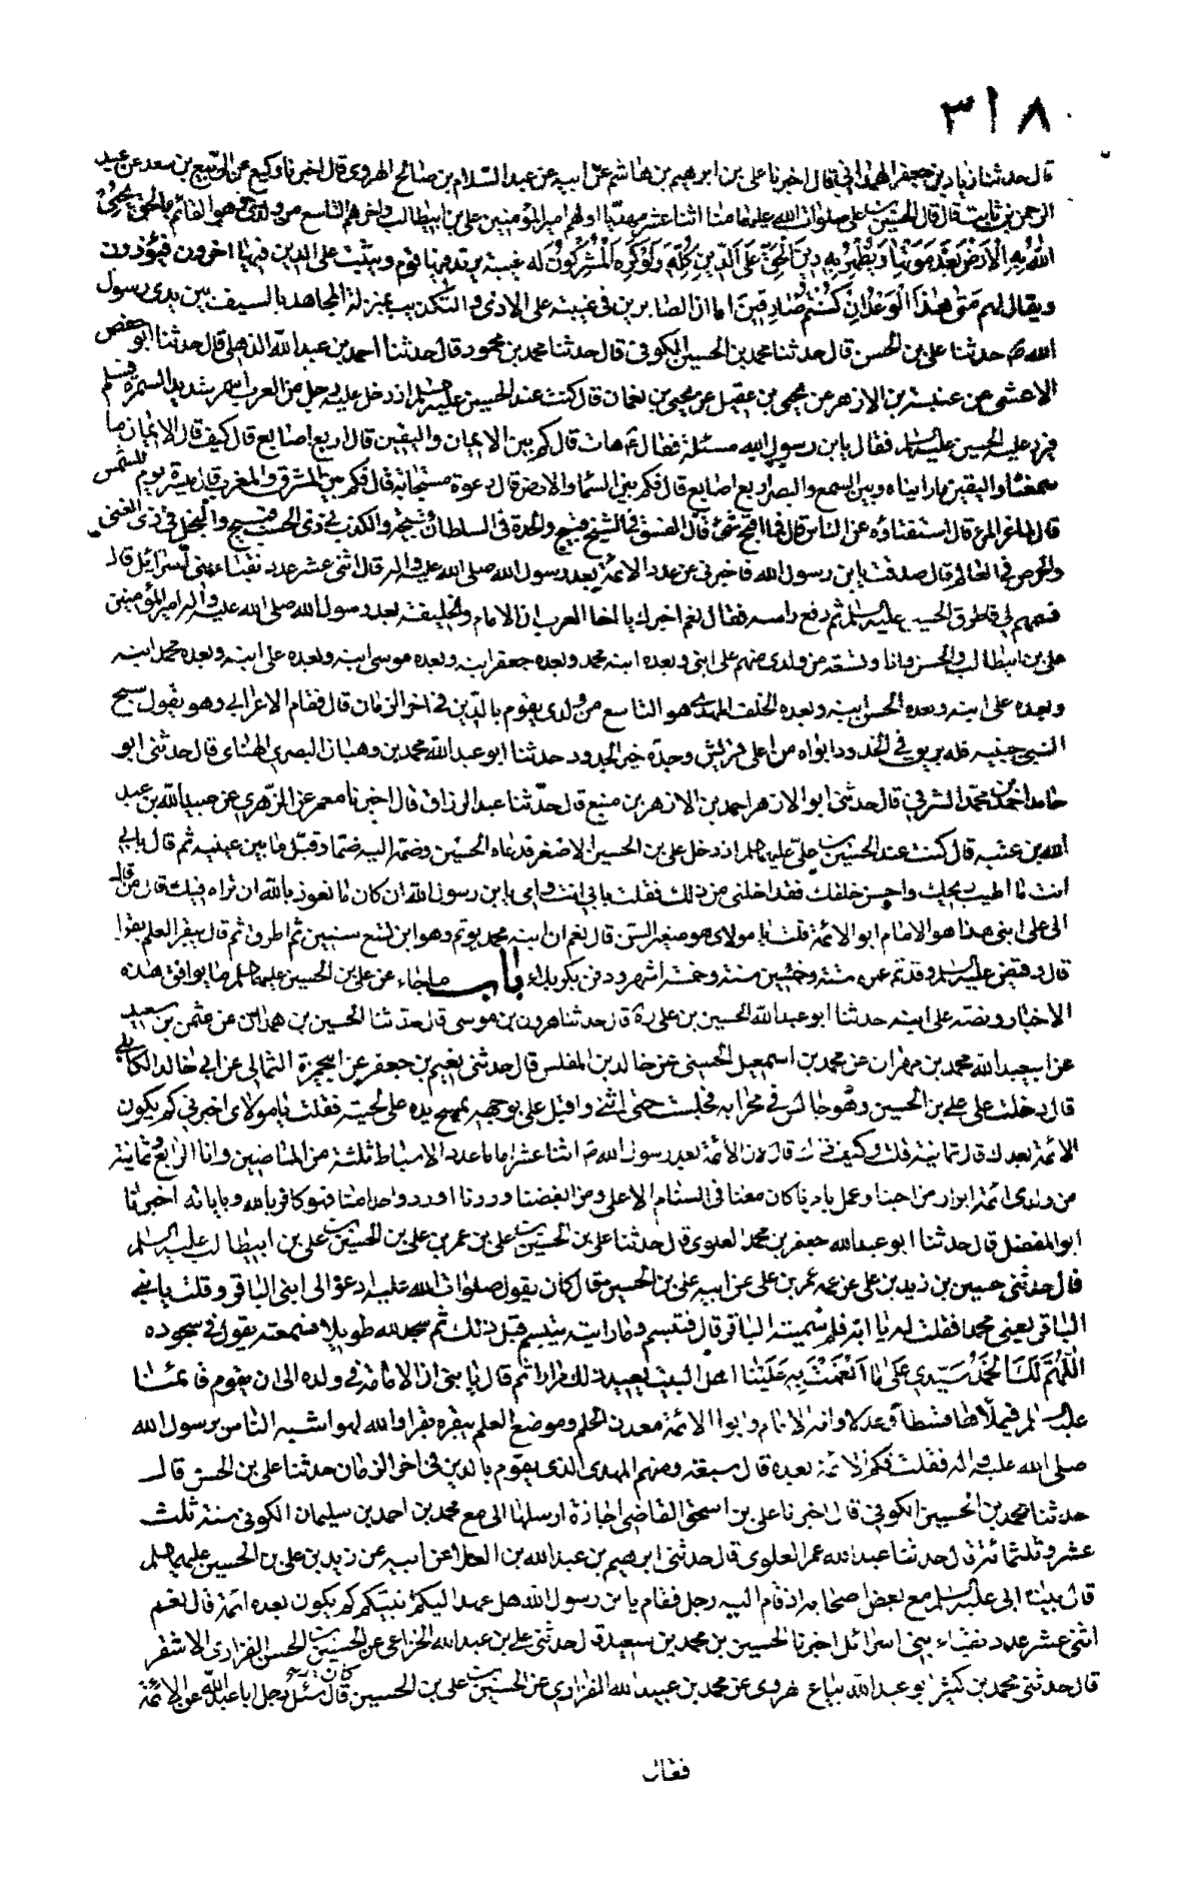 ٣١٨
قال حدثنا زياد بن جعفر الهمداني قال اخبرنا على بن ابرهيم بن هاشم عن ابيه عن عبد السلام بن صالح الهروى قال اخبرنا وكيع عن الربيع بن سعد عن عبد
الرحمن بن ثابت قال قال الحسين بن على صلوات الله عليهما منا اثنا عشر مهديا اولهم امير المؤمنين على بن ابيطالب واخرهم التاسع من ولدى وهو القائم بالحق يحيى
الله به الارض بعد موتها ويظهر به دين الحق على الدين كله ولو كره المشركون له غيبة يرتد فيها قوم ويثبت على الدين فيها اخرون فيؤذون
ويقال لهم متى هذا الوعد ان كنتم صادقين اما ان الصابرين فى غيبته على الاذى والتكذيب بمنزلة المجاهد بالسيف بين يدى رسول
الله ص حدثنا على بن الحسن قال حدثنا محمد بن الحسين الكوفى قال حدثنا محمد بن محمود قال حدثنا احمد بن عبد الله الذهلى قال حدثنا ابو حفص
الاعشى عن عنبسة بن الازهر عن يحيى بن عقيل عن يحيى بن نعمان قال كنت عند الحسين عليه السلم اذ دخل عليه رجل من العرب اسمر شديد السمرة فسلم
فرد عليه الحسين عليه السلم فقال يا بن رسول الله مسئلة فقال هات قال كم بين الايمان واليقين قال اربع اصابع قال كيف قال الايمان ما
سمعناه واليقين ما رايناه وبين السمع والبصر اربع اصابع قال فكم بين السماء والارض قال دعوة مستجابة قال فكم بين المشرق والمغرب قال مسيرة يوم للشمس
قال فما عز المرء قال استغناؤه عن الناس قال فما اقبح شئ قال الفسق فى الشيخ قبيح والحدة فى السلطان قبيحة والكذب فى ذى الحسب قبيح والبخل فى ذى الغنى
والحرص فى العالم قال صدقت يا بن رسول الله فاخبرنى عن عدد الائمة بعد رسول الله صلى الله عليه واله قال اثنى عشر عدد نقباء بنى اسرائيل قال
فسمهم لى فاطرق الحسين عليه السلم ثم رفع راسه فقال نعم اخبرك يا اخا العرب ان الامام والخليفة بعد رسول الله صلى الله عليه واله امير المؤمنين
على بن ابيطالب والحسن وانا وتسعة من ولدى منهم على ابنى وبعده ابنه محمد وبعده جعفر ابنه وبعده موسى ابنه وبعده على ابنه وبعده محمد ابنه
وبعده على ابنه وبعده الحسن ابنه وبعده الخلف المهدى هو التاسع من ولدى يقوم بالدين فى اخر الزمان قال فقام الاعرابى وهو يقول مسح
النبى جبينه فله بريق فى الخدود ابواه من اعلى قريش وجده خير الجدود حدثنا ابو عبد الله محمد بن وهبان البصرى الهنائى قال حدثنى ابو
حامد احمد بن محمد الشرقى قال حدثنى ابو الازهر احمد بن الازهر بن منيع قال حدثنا عبد الرزاق قال اخبرنا معمر عن الزهرى عن عبيد الله بن عبد
الله بن عتبة قال كنت عند الحسين بن على عليهما السلم اذ دخل على بن الحسين الاصغر فدعاه الحسين وضمه اليه ضما وقبل ما بين عينيه ثم قال بابى
انت ما اطيب ريحك واحسن خلقك فتداخلنى من ذلك فقلت بابى انت وامى يا بن رسول الله ان كان ما نعوذ بالله ان نراه فيك فالى من قال
الى على ابنى هذا هو الامام ابو الائمة قلت يا مولاى هو صغير السن قال نعم ان ابنه محمد يؤتم وهو ابن تسع سنين ثم اطرق ثم قال يبقر العلم بقرا
قال وقبض عليه السلم وقد تم عمره ستة وخمسين سنة وخمسة اشهر ودفن بكربلاء باب ما جاء عن على بن الحسين عليهما السلم ما يوافق هذه
الاخبار ونصه على ابنه حدثنا ابو عبد الله الحسين بن على ره قال حدثنا هرون بن موسى قال حدثنا الحسين بن همدان عن عثمن بن سعيد
عن ابيعبد الله محمد بن مهران عن محمد بن اسمعيل الحسنى عن خالد بن المفلس قال حدثنى نعيم بن جعفر عن ابيحمزة الثمالى عن ابى خالد الكابلى
قال دخلت على على بن الحسين وهو جالس فى محرابه فجلست حتى انثنى واقبل على بوجهه يمسح يده على لحيته فقلت يا مولاى اخبرنى كم يكون
الائمة بعدك قال ثمانية قلت وكيف ذاك قال لان الائمة بعد رسول الله ص اثنا عشر اماما عدد الاسباط ثلثة من الماضين وانا الرابع وثمانية
من ولدى ائمة ابرار من احبنا وعمل بامرنا كان معنا فى السنام الاعلى ومن ابغضنا وردنا او رد واحدا منا فهو كافر بالله وباياته اخبرنا
ابو المفضل قال حدثنا ابو عبد الله جعفر بن محمد العلوى قال حدثنا على بن الحسين بن على بن عمر بن على بن الحسين بن على بن ابيطالب عليه السلم
قال حدثنى حسين بن زيد بن على عن عمه عمر بن على عن ابيه على بن الحسين قال كان يقول صلوات الله عليه ادعوا لى ابنى الباقر وقلت لابنى
الباقر يعنى محمدا فقلت له يا ابه فلم سميته الباقر قال فتبسم وما رايته يتبسم قبل ذلك ثم سجد لله طويلا فسمعته يقول فى سجوده
اللهم لك الحمد سيدى على ما انعمت به علينا اهل البيت يعيد ذلك مرارا ثم قال يا بنى ان الامامة فى ولده الى ان يقوم قائمنا
عليه السلم فيملاها قسطا وعدلا وانه الامام وابو الائمة معدن الحلم وموضع العلم يبقره بقرا والله لهو اشبه الناس برسول الله
صلى الله عليه واله فقلت فكم الائمة بعده قال سبعة ومنهم المهدى الذى يقوم بالدين فى اخر الزمان حدثنا على بن الحسن قال
حدثنا محمد بن الحسين الكوفى قال اخبرنا على بن اسحق القاضى اجازة ارسلها الى مع محمد بن احمد بن سليمان الكوفى سنة ثلث
عشر وثلثمائة قال حدثنا عبد الله عمر العلوى قال حدثنى ابرهيم بن عبد الله بن العلا عن ابيه عن زيد بن على بن الحسين عليهم السلم
قال بينا ابى عليه السلم مع بعض اصحابه اذ قام اليه رجل فقام يا بن رسول الله هل عهد اليكم نبيكم كم يكون بعده ائمة قال نعم
اثنى عشر عدد نقباء بنى اسرائيل اخبرنا الحسين بن محمد بن سعيد قال حدثنى على بن عبد الله الخزاعى عن الحسين بن الحسن الفزارى الاشقر
قال حدثنى محمد بن كثير ابو عبد الله بياع هروى عن محمد بن عبيد الله الفزارى عن الحسين بن على بن الحسين قال سئل رجل ابا عبد الله عن الائمة
فقال